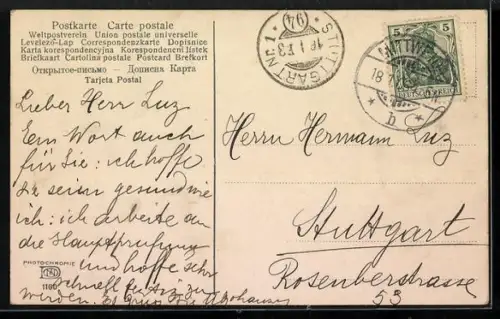 Postkarte Carte postale
Weltpostverein. Union postale universelle
Levelező-Lap Correspondenzkarte Dopisnice
Karta korespondencyjna Korespondenční lístek
Briefkaart Cartolina postale Postcard Brefkort
Открытое-письмо — Дописна Карта
Tarjeta Postal
STUTTGART Nr. 1
(94)
5 5
18. 1
b
Lieber Herr Luz
Ein Wort auch
für Sie: ich hoffe
Sie seien gesund wie
ich: ich arbeite an
die Hauptprüfung
und hoffe sehr
schnell fertig zu
werden.
Herrn Hermann Luz
Stuttgart
Rosenbergstrasse
53
PHOTOCHROMIE